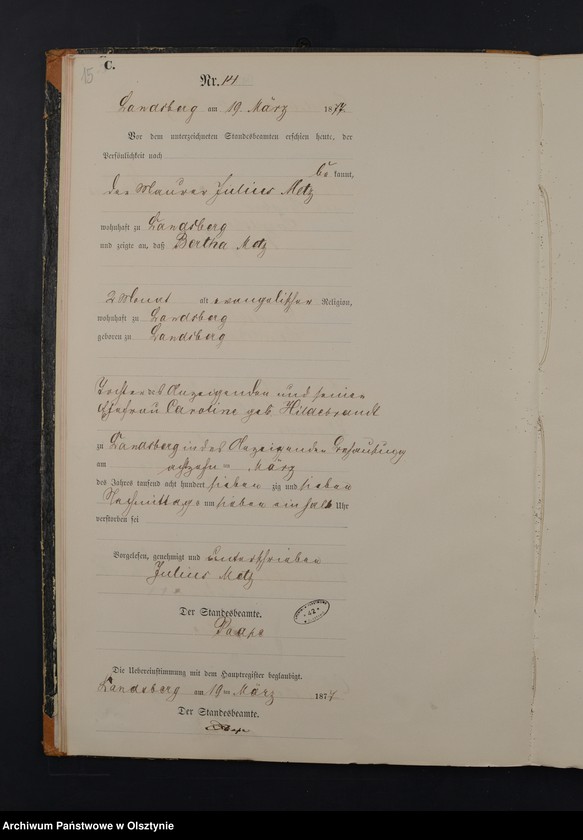 15
C.
Nr. 14
Landsberg am 19. März 1877.
Vor dem unterzeichneten Standesbeamten erschien heute, der
Persönlichkeit nach
be kannt,
der Maurer Julius Metz
wohnhaft zu Landsberg
und zeigte an, daß Bertha Metz
2 Monat alt evangelischer Religion,
wohnhaft zu Landsberg
geboren zu Landsberg
Tochter des Anzeigenden und seiner
Ehefrau Caroline geb. Hildebrandt
zu Landsberg in des Anzeigenden Behausung
am achzehn ten März
des Jahres tausend acht hundert sieben zig und sieben
Nachmittags um sieben ein halb Uhr
verstorben sei
Vorgelesen, genehmigt und unterschrieben
Julius Metz
Der Standesbeamte.
42
Die Uebereinstimmung mit dem Hauptregister beglaubigt.
Landsberg am 19ten März 1877
Der Standesbeamte.
Archiwum Państwowe w Olsztynie